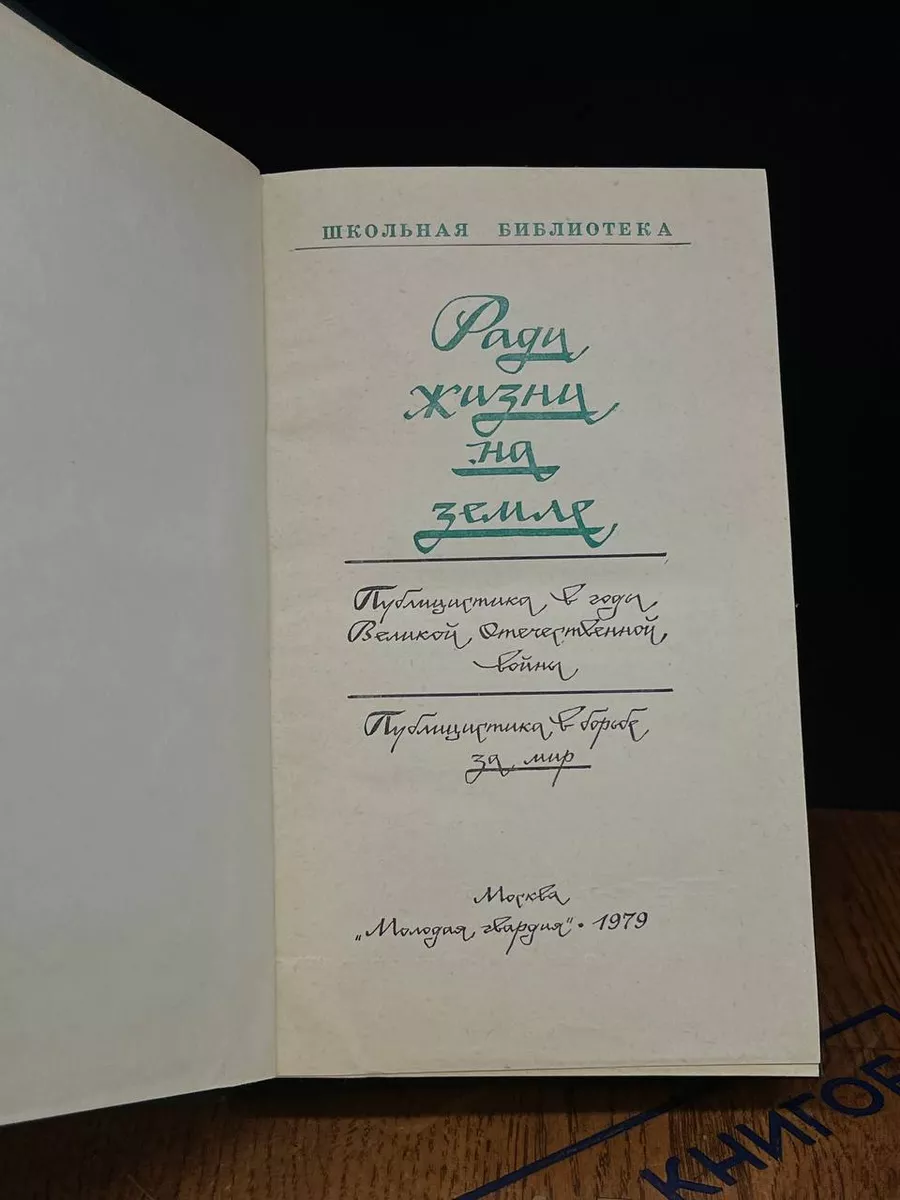 ШКОЛЬНАЯ БИБЛИОТЕКА
Ради
жизни
на
земле
Публицистика в годы
Великой Отечественной
войны
Публицистика в борьбе
за мир
Москва
„Молодая гвардия“ • 1979